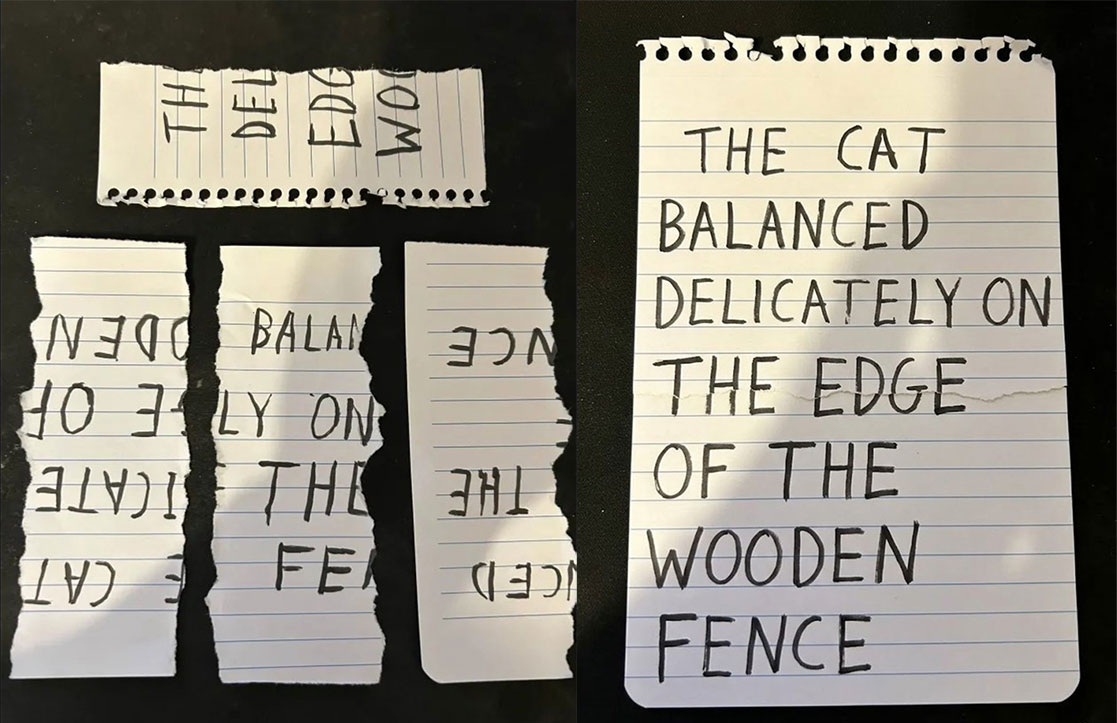 TH
DEL
EDG
WOO
E CAT
ICATE
E OF
ODEN
BALAN
LY ON
THE
FEN
NCED
THE
NCE
THE CAT
BALANCED
DELICATELY ON
THE EDGE
OF THE
WOODEN
FENCE